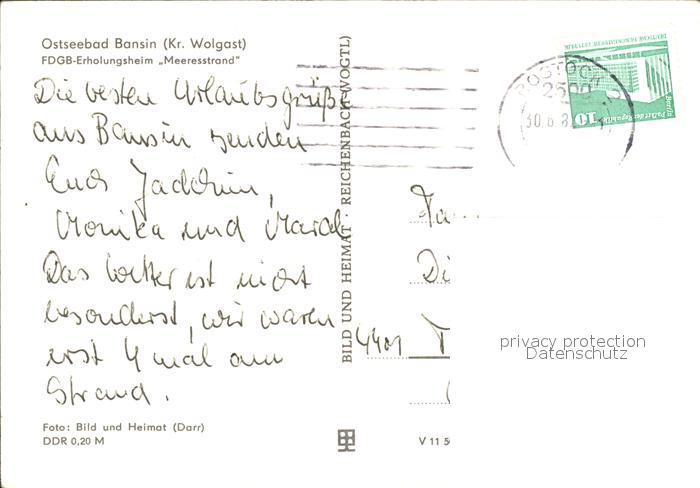 Ostseebad Bansin (Kr. Wolgast)
FDGB-Erholungsheim „Meeresstrand"
Die besten Urlaubsgrüße
aus Bansin senden
Euch Joachim,
Monika und
Das Wetter ist nicht
besonderst, wir waren
erst 4 mal am
Strand.
Foto: Bild und Heimat (Darr)
DDR 0,20 M
BILD UND HEIMAT · REICHENBACH (VOGTL)
V 11 50
ROSTOCK
2500
30.6.8
DEUTSCHE DEMOKRATISCHE REPUBLIK
Berlin
Palast der Republik
10
Fa
Di
4401
privacy protection
Datenschutz